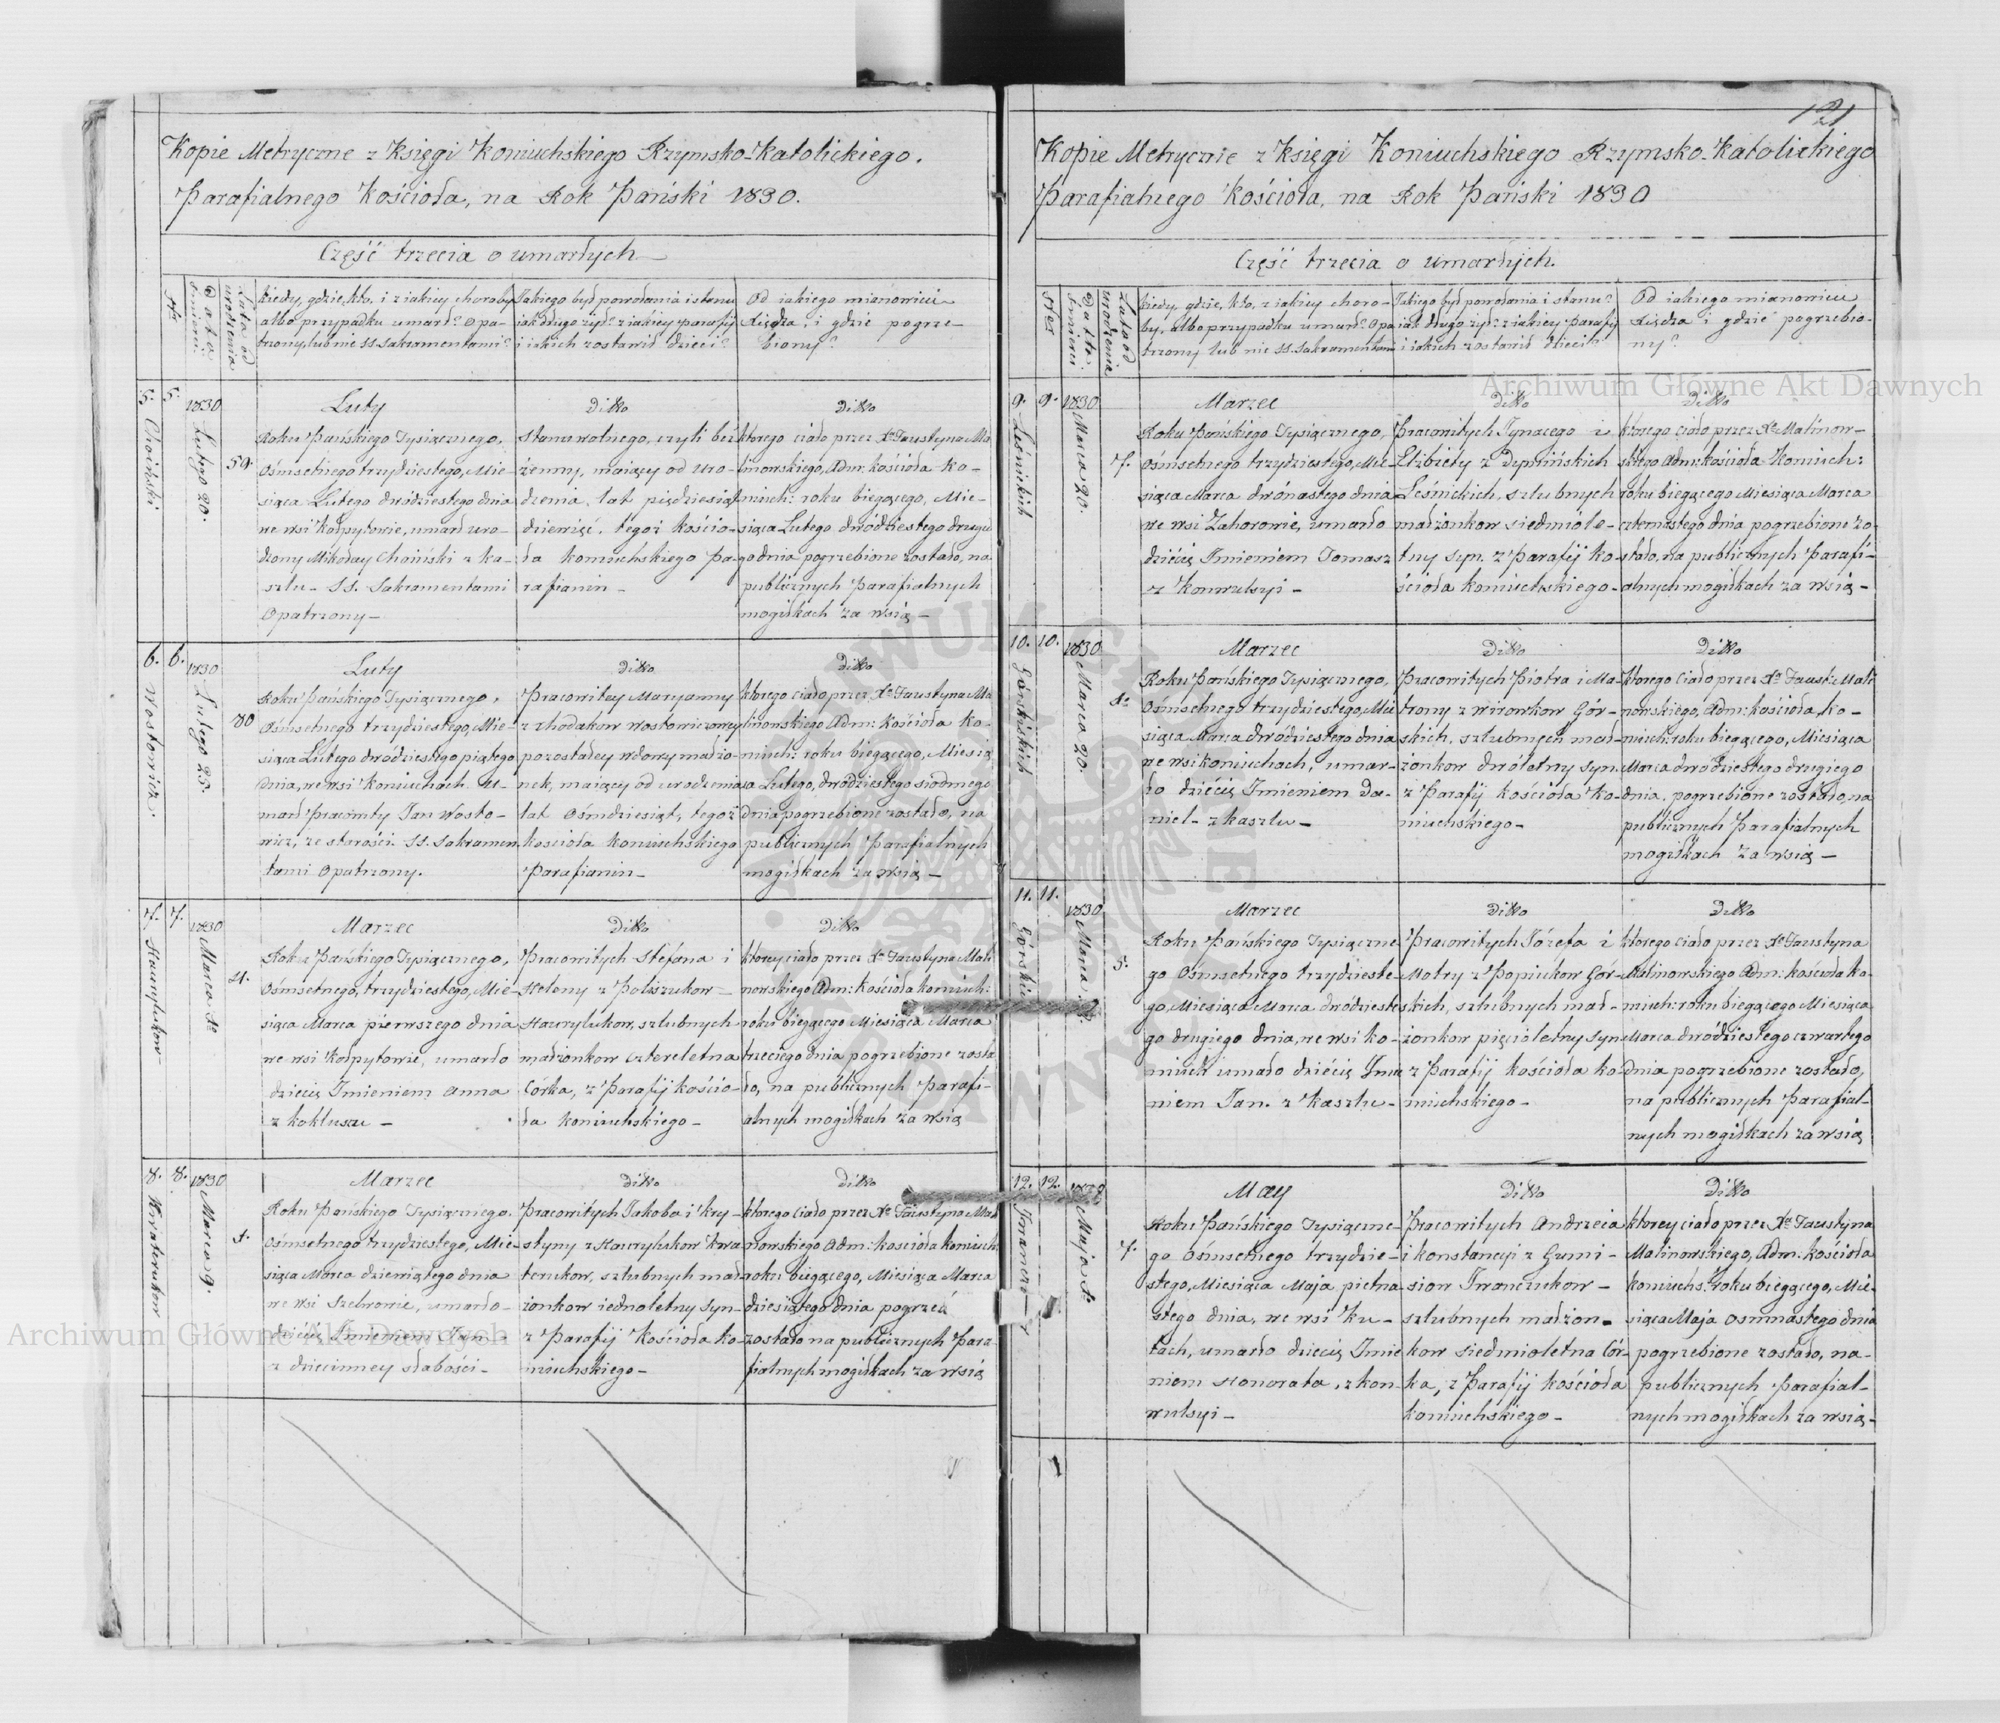 Kopie Metryczne z Księgi Koniuchskiego Rzymsko-Katolickiego.
Parafialnego Kościoła, na Rok Pański 1830.
Część trzecia o umarłych
Nro
Data śmierci.
Lata od urodzenia
Kiedy, gdzie, kto, i z iakiey choroby
albo przypadku umarł? Opa-
trzony lub nie SS. Sakramentami?
Jakiego był powołania i stanu
jak długo żył? z iakiey parafij
i iakich zostawił dzieci?
Od iakiego mianowicie
Xiędza, i gdzie pogrze-
biony?
5. 5. 1830
Choiński
Lutego 20.
59.
Luty
Roku Pańskiego Tysiącznego,
Ośmsetnego trzydziestego, Mie-
siąca Lutego dwódziestego dnia
we wsi Kołpytowie, umarł uro-
dzony Mikołay Choiński z ka-
szlu- SS. Sakramentami
Opatrzony-
ditto
Stanu wolnego, czyli bez
żenny, maiący od uro-
dzenia lat pięćdziesiąt
dziewięć, tegoż kościo-
ła koniuchskiego Pa-
rafianin-
ditto
ktorego ciało przez Xa Faustyna Ma
linowskiego, Adm: kościoła Ko-
niuch: roku biegącego, Mie-
siąca Lutego dwódziestego drugie
go dnia pogrzebione zostało, na
publicznych Parafialnych
mogiłkach za wsią-
6. 6. 1830
Wostowicz.
Lutego 25.
80
Luty
Roku Pańskiego Tysiącznego,
Ośmsetnego trzydziestego, Mie-
siąca Lutego dwódziestego piątego
dnia, we wsi Koniuchach u-
marł Pracowity Jan Wosto-
wicz, ze starości. SS. Sakramen
tami Opatrzony.
ditto
Pracowitey Maryanny
z Chodakow Wostowiczowey
pozostałey wdowy małżo-
nek, maiący od urodzenia
lat Ośmdziesiąt, tegoż
kościoła Koniuchskiego
Parafianin-
ditto
ktorego ciało przez Xa Faustyna Ma
linowskiego Adm: Kościoła Ko-
niuch: roku biegącego, Miesią
ca Lutego, dwodziestego siodmego
dnia pogrzebione zostało, na
publicznych Parafialnych
mogiłkach za wsią-
7. 7. 1830
Hawrylukow-
Marca 1o
4.
Marzec
Roku Pańskiego Tysiącznego,
Ośmsetnego, trzydziestego, Mie-
siąca Marca pierwszego dnia
we wsi Kołpytowie, umarło
dziecię Imieniem Anna
z kokluszu-
ditto
Pracowitych Stefana i
Heleny z Poliszukow-
Hawrylukow, szlubnych
małżonkow cztereletna
Córka, z Parafij kościo-
ła koniuchskiego-
ditto
ktorey ciało przez Xa Faustyna Mali
nowskiego Adm: kościoła koniuch:
roku biegącego Miesiąca Marca
trzeciego dnia pogrzebione zosta
ło, na publicznych Parafi-
alnych mogiłkach za wsią
8. 8. 1830
Kwaterukow
Marca 9.
1.
Marzec
Roku Pańskiego Tysiącznego.
Ośmsetnego trzydziestego, Mie-
siąca Marca dziewiątego dnia
we wsi Szelwowie, umarło-
dziecię Imieniem
z dziecinney słabości-
ditto
Pracowitych Jakoba i Kry-
styny z Hawrylukow Kwa
terukow, szlubnych mał
żonkow iednoletny syn-
z Parafij Kościoła ko-
niuchskiego-
ditto
ktorego ciało przez Xa Faustyna Mali
nowskiego Adm: kościoła Koniuch:
roku biegącego, Miesiąca Marca
dziesiątego dnia pogrzeb
zostało na publicznych Para-
fialnych mogiłkach za wsią
121
Kopie Metryczne z Księgi Koniuchskiego Rzymsko-Katolickiego
Parafialnego Kościoła, na Rok Pański 1830
Część trzecia o umarłych.
Nro
Data śmierci
Lata od urodzenia
Kiedy, gdzie, kto, z iakiey choro-
by, albo przypadku umarł? Opa
trzony lub nie SS. Sakramentami
Jakiego był powołania i stanu?
iak długo żył? z iakiey Parafij
i iakich zostawił dzieci?
Od iakiego mianowicie
Xiędza i gdzie pogrzebio-
ny?
9. 9. 1830
Leśnickich
Marca 20.
7.
Marzec
Roku Pańskiego Tysiącznego,
Ośmsetnego trzydziestego, Mie-
siąca Marca dwónastego dnia
we wsi Zahorowie, umarło
dziécię Imieniem Tomasz
z Konwulsyi-
ditto
Pracowitych Ignacego i
Elżbiety z Dymińskich
Leśnickich, szlubnych
małżonkow siedmiole-
tny syn. z Parafij ko-
ścioła koniuchskiego-
ditto
ktorego ciało przez Xa Malinow-
skiego Adm: kościoła Koniuch:
roku biegącego Miesiąca Marca
czternastego dnia pogrzebione zo-
stało, na publicznych Parafi-
alnych mogiłkach za wsią-
10. 10. 1830
Górskich
Marca 20.
2.
Marzec
Roku Pańskiego Tysiącznego,
Ośmsetnego trzydziestego, Mie
siąca Marca dwódziestego dnia
we wsi koniuchach, umar-
ło dziécię Imieniem Da-
niel- z kaszlu-
ditto
Pracowitych Piotra i Ma-
trony z Wirowkow Gór-
skich, szlubnych mał-
żonkow dwóletny syn.
z Parafij kościoła Ko-
niuchskiego-
ditto
ktorego ciało przez Xa Faust: Mali
nowskiego, Adm: kościoła, ko-
niuch: roku biegącego, Miesiąca
Marca dwódziestego drugiego
dnia, pogrzebione zostało, na
publicznych Parafialnych
mogiłkach za wsią-
11. 11. 1830
Górskich
Marca
5.
Marzec
Roku Pańskiego Tysiączne
go Ośmsetnego trzydzieste-
go, Miesiąca Marca dwódzieste
go drugiego dnia, we wsi Ko-
niuch umarło dziécię Imie
niem Jan. z Kaszlu-
ditto
Pracowitych Józefa i
Motry z Popiukow Gór-
skich, szlubnych mał-
żonkow pięcioletny syn
z Parafij kościoła ko-
niuchskiego-
ditto
ktorego ciało przez Xa Faustyna
Malinowskiego Adm: kościoła ko-
niuch: roku biegącego Miesiąca
Marca dwódziestego czwartego
dnia pogrzebione zostało,
na publicznych Parafial-
nych mogiłkach za wsią
12. 12. 1830
Iwanczu
Maja
7.
May
Roku Pańskiego Tysiączne-
go Ośmsetnego trzydzie-
stego, Miesiąca Maja pietna
stego dnia, we wsi Ku-
tach, umarło dziecię Imie
niem Honorata, z kon-
wulsyi-
ditto
Pracowitych Andrzeia
i konstancyi z Gumi-
siow Iwanczukow-
szlubnych małżon-
kow siedmioletna Cór-
ka, z Parafij kościoła
koniuchskiego-
ditto
ktorey ciało przez Xa Faustyna
Malinowskiego, Adm: kościoła
koniuchs: roku biegącego, Mie-
siąca Maja osmnastego dnia
pogrzebione zostało, na-
publicznych Parafial-
nych mogiłkach za wsią-
Archiwum Główne Akt Dawnych
Archiwum Główne Akt Dawnych